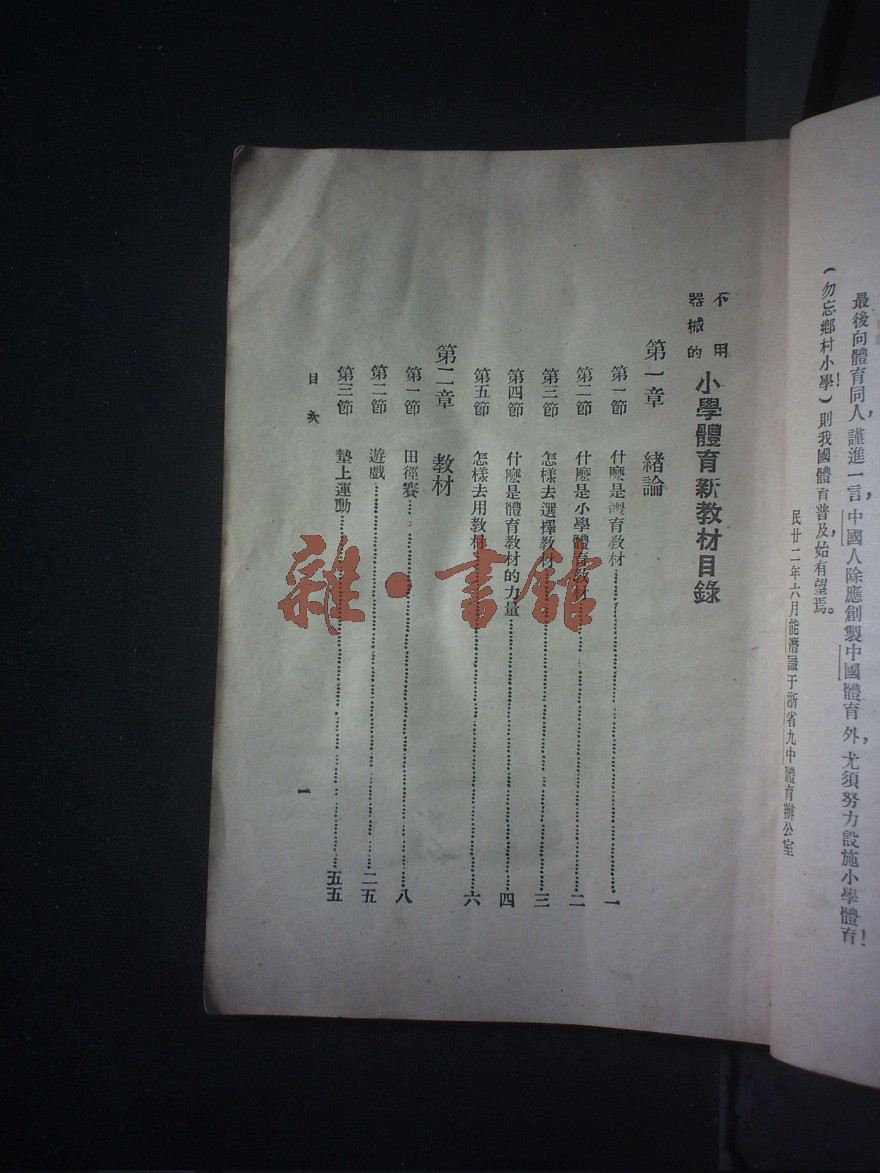 最後向體育同人，謹進一言，中國人除應創製中國體育外，尤須努力設施小學體育！
（勿忘鄉村小學！）則我國體育普及，始有望焉。
民廿二年六月能潛識于浙省九中體育辦公室
不用
器械的
小學體育新教材目錄
第一章　緒論
第一節　什麽是體育教材……一
第二節　什麽是小學體育教材……二
第三節　怎樣去選擇教材……三
第四節　什麽是體育教材的力量……四
第五節　怎樣去用教材……六
第二章　教材
第一節　田徑賽……八
第二節　遊戲……二五
第三節　墊上運動……五五
目次
一
雜·書館